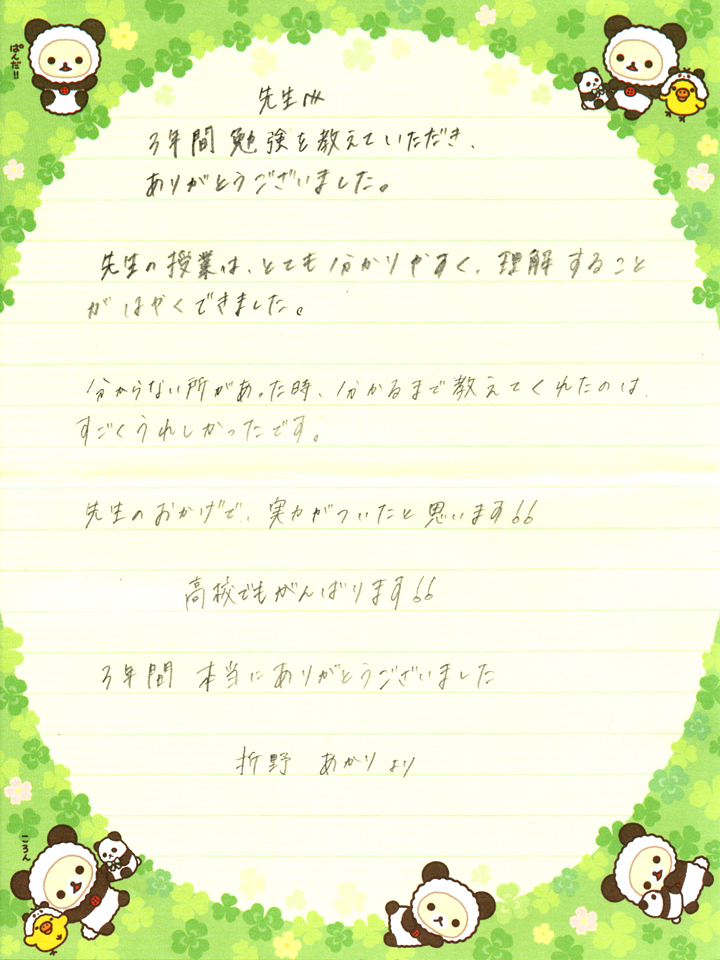 ぱんだ!!
先生へ
3年間 勉強を教えていただき、
ありがとうございました。
先生の授業は、とても分かりやすく、理解すること
がはやくできました。
分からない所があった時、分かるまで教えてくれたのは、
すごくうれしかったです。
先生のおかげで、実力がついたと思います!!
高校でもがんばります!!
3年間 本当にありがとうございました
折野 あかり より
ころん